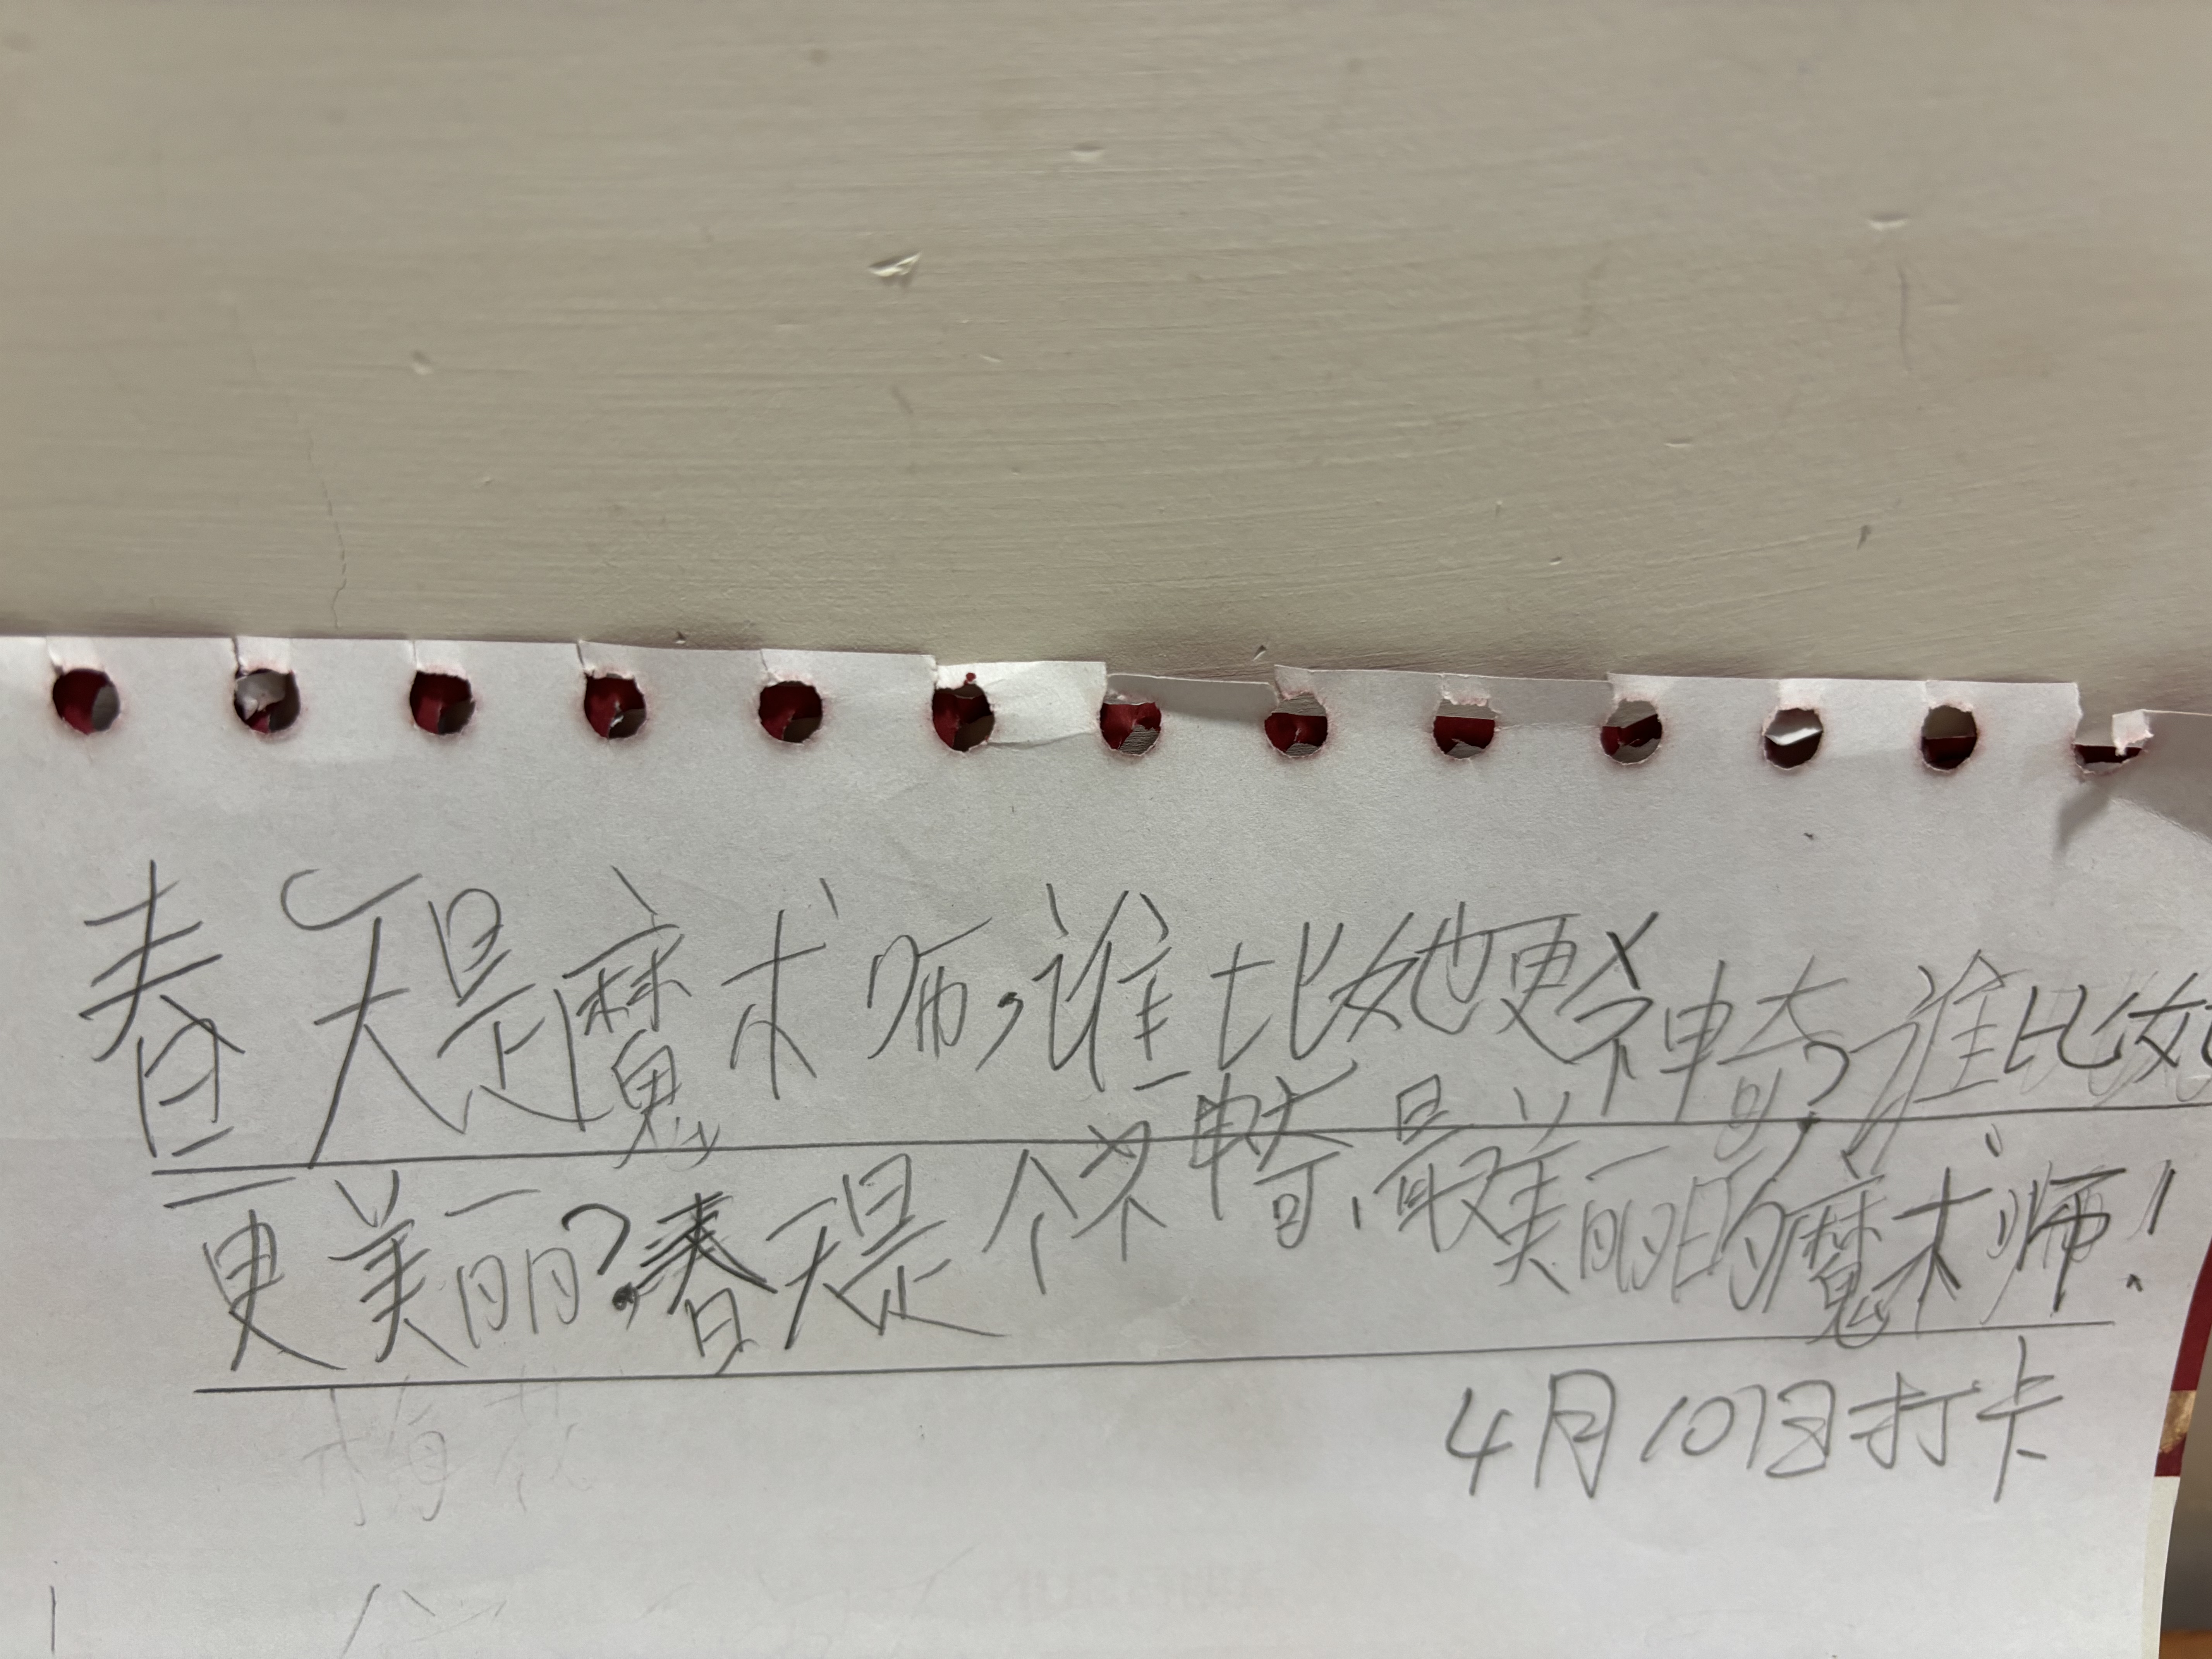 春天是魔术师,谁比她更神奇?谁比她
更美丽?春天是个神奇、最美丽的魔术师!
4月10日打卡